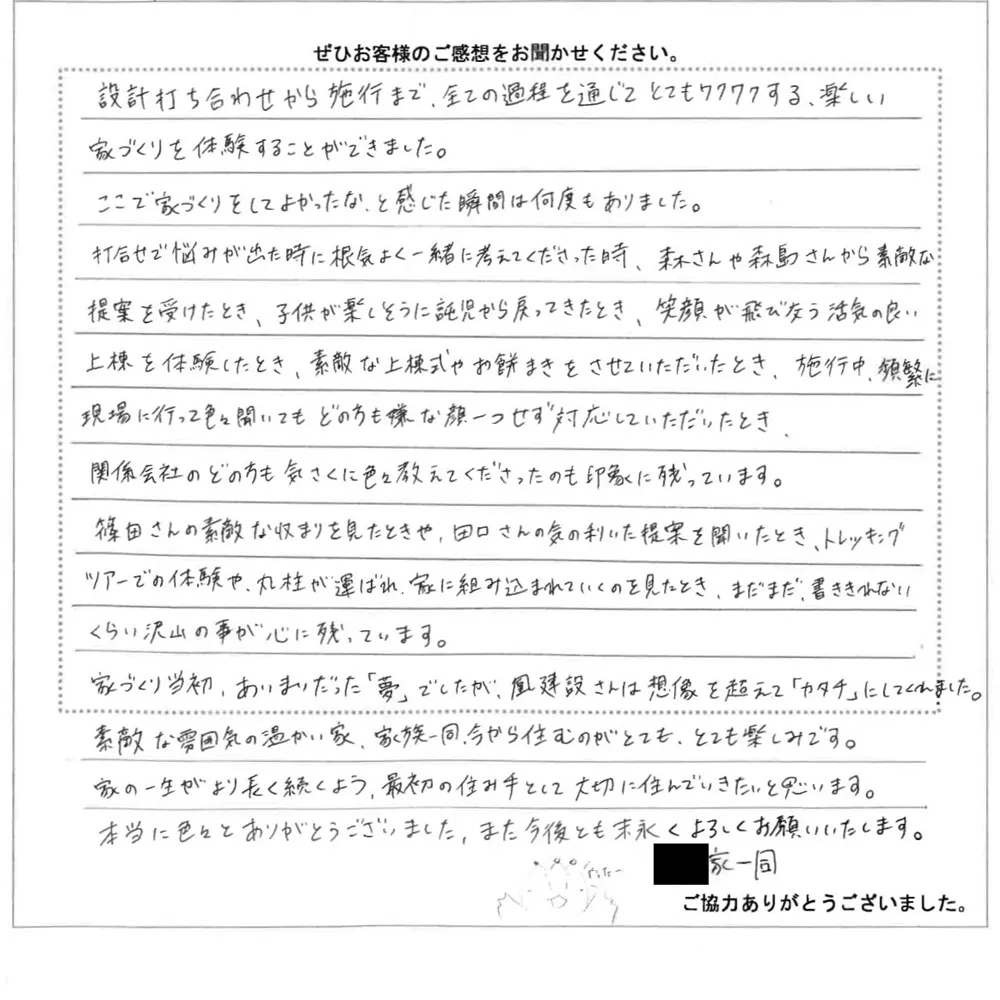 ぜひお客様のご感想をお聞かせください。
設計打ち合わせから施行まで、全ての過程を通じてとてもワクワクする、楽しい
家づくりを体験することができました。
ここで家づくりをしてよかったな、と感じた瞬間は何度もありました。
打合せで悩みが出た時に根気よく一緒に考えてくださった時、森さんや森島さんから素敵な
提案を受けたとき、子供が楽しそうに託児から戻ってきたとき、笑顔が飛び交う活気の良い
上棟を体験したとき、素敵な上棟式やお餅まきをさせていただいたとき、施行中、頻繁に
現場に行って色々聞いてもどの方も嫌な顔一つせず対応していただいたとき、
関係会社のどの方も気さくに色々教えてくださったのも印象に残っています。
篠田さんの素敵な収まりを見たときや、田口さんの気の利いた提案を聞いたとき、トレッキング
ツアーでの体験や、丸柱が運ばれ、家に組み込まれていくのを見たとき、まだまだ、書ききれない
くらい沢山の事が心に残っています。
家づくり当初、あいまいだった「夢」でしたが、凰建設さんは想像を超えて「カタチ」にしてくれました。
素敵な雰囲気の温かい家、家族一同、今から住むのがとても、とても楽しみです。
家の一生がより長く続くよう、最初の住み手として大切に住んでいきたいと思います。
本当に色々とありがとうございました。また今後とも末永くよろしくお願いいたします。
家一同
やったー
ご協力ありがとうございました。